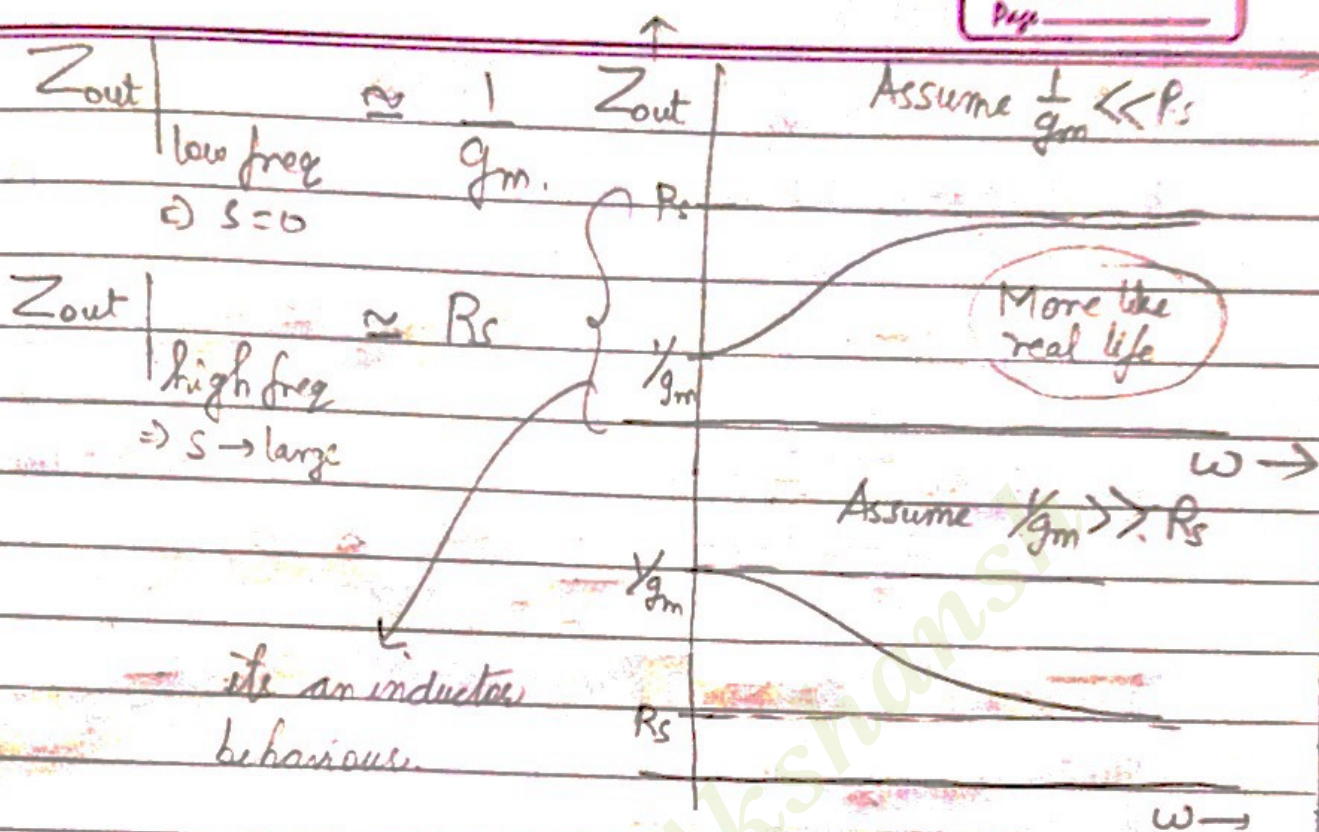 Page
Zout | low freq ≃ 1/gm.
⇒ s=0
Zout | high freq ≃ Rs
⇒ s → large
its an inductor
behaviour.
↑
Zout
Assume 1/gm << Rs
Rs
1/gm
More like
real life
ω →
Assume 1/gm >> Rs
1/gm
Rs
ω →
kshansh